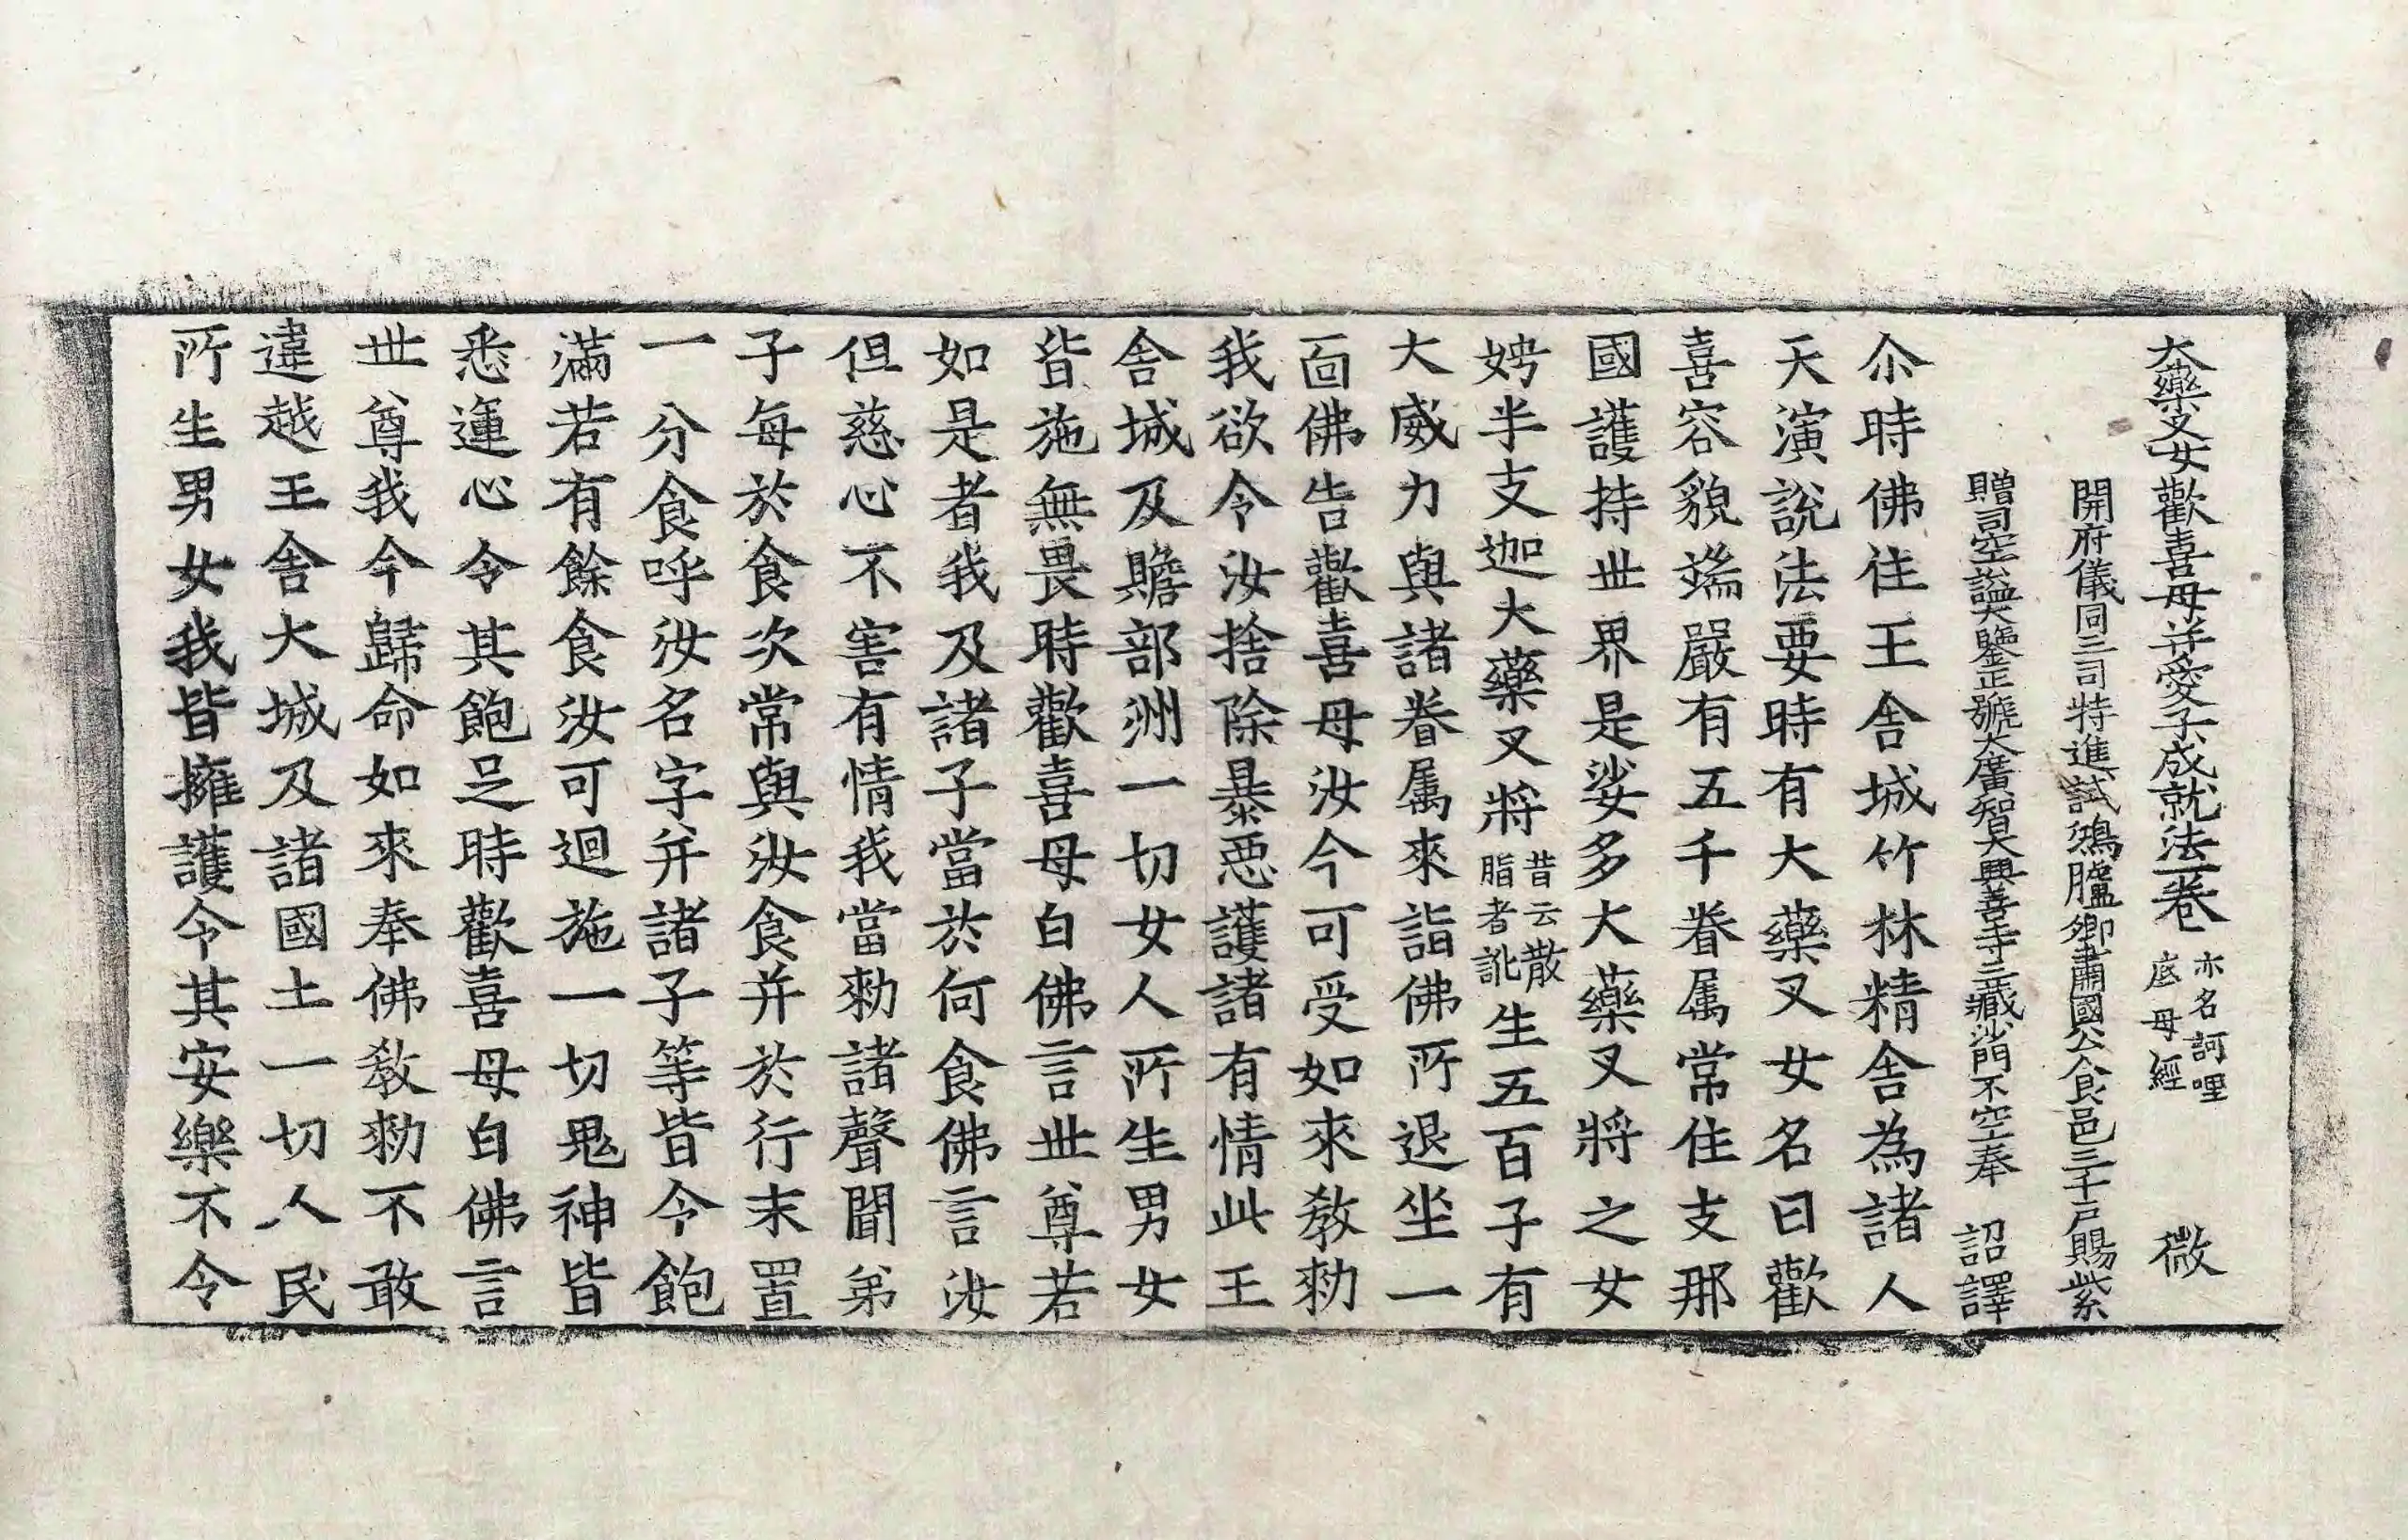 大藥叉女歡喜母并愛子成就法一卷 亦名訶哩底母經 微
開府儀同三司特進試鴻臚卿肅國公食邑三千戶賜紫
贈司空謚大鑒正號大廣智大興善寺三藏沙門不空奉 詔譯
尒時佛住王舍城竹林精舍為諸人
天演說法要時有大藥叉女名曰歡
喜容貌端嚴有五千眷属常住支那
國護持世界是娑多大藥叉將之女
娉半支迦大藥叉將昔云散脂者訛生五百子有
大威力與諸眷属來詣佛所退坐一
面佛告歡喜母汝今可受如來教勑
我欲令汝捨除暴惡護諸有情此王
舍城及贍部洲一切女人所生男女
皆施無畏時歡喜母白佛言世尊若
如是者我及諸子當於何食佛言汝
但慈心不害有情我當勑諸聲聞弟
子每於食次常與汝食并於行末置
一分食呼汝名字并諸子等皆令飽
滿若有餘食汝可迴施一切鬼神皆
悉運心令其飽足時歡喜母白佛言
世尊我今歸命如來奉佛教勑不敢
違越王舍大城及諸國土一切人民
所生男女我皆擁護令其安樂不令